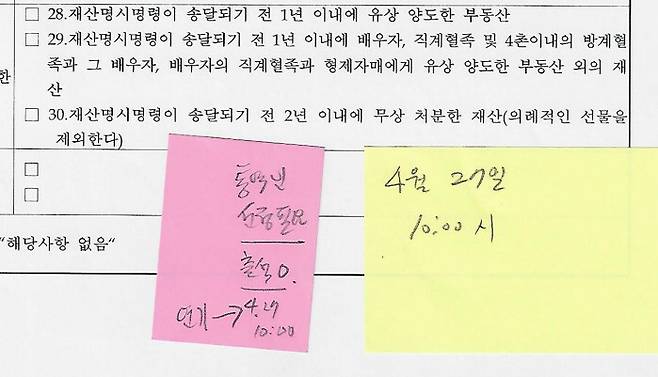 □ 28.재산명시명령이 송달되기 전 1년 이내에 유상 양도한 부동산
□ 29.재산명시명령이 송달되기 전 1년 이내에 배우자, 직계혈족 및 4촌이내의 방계혈
족과 그 배우자, 배우자의 직계혈족과 형제자매에게 유상 양도한 부동산 외의 재
산
한
□ 30.재산명시명령이 송달되기 전 2년 이내에 무상 처분한 재산(의례적인 선물을
제외한다)
□
□
"해당사항 없음"
통역인
선정필요
출석 O.
연기 → 4.27
10:00
4월 27일
10:00 시